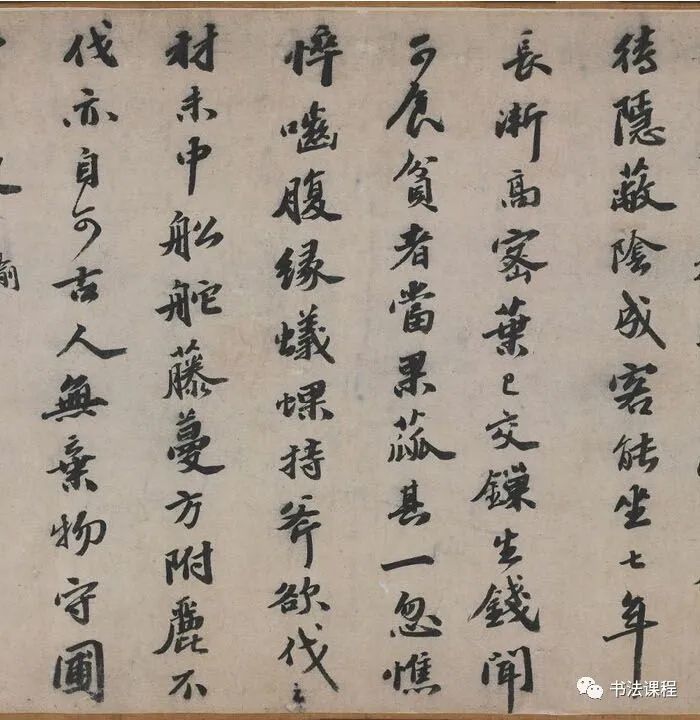 待隱蔽陰成客能坐七年
長漸高密葉已交鏁生錢聞
可食貧者當果蓏其一忽憔
悴嚙腹緣蟻蜾持斧欲伐之
材未中船舵藤蔓方附麗不
伐亦自可古人無棄物守圃
书法课程